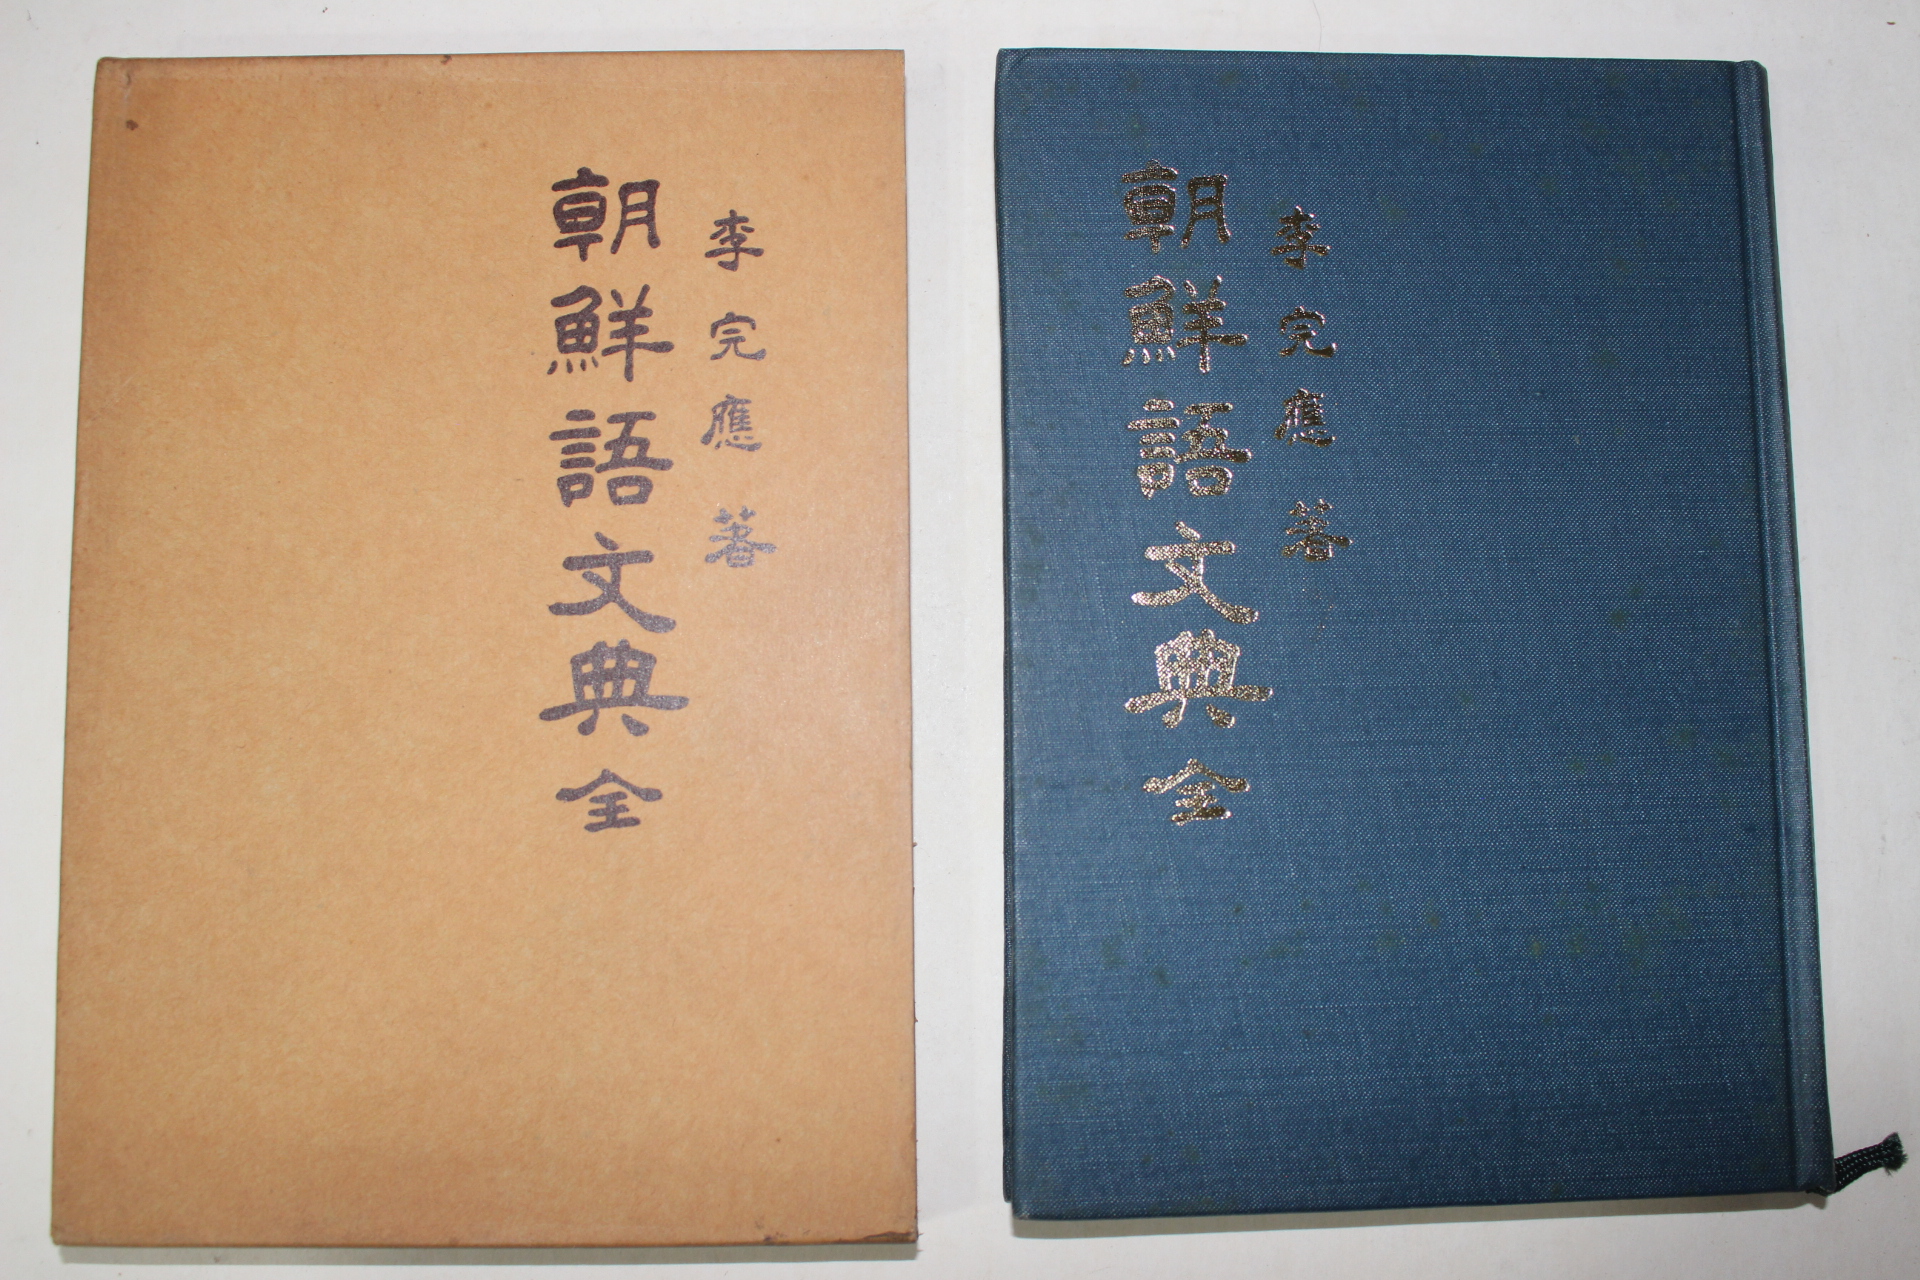 李完應 著
朝鮮語文典 全
李完應 著
朝鮮語文典 全